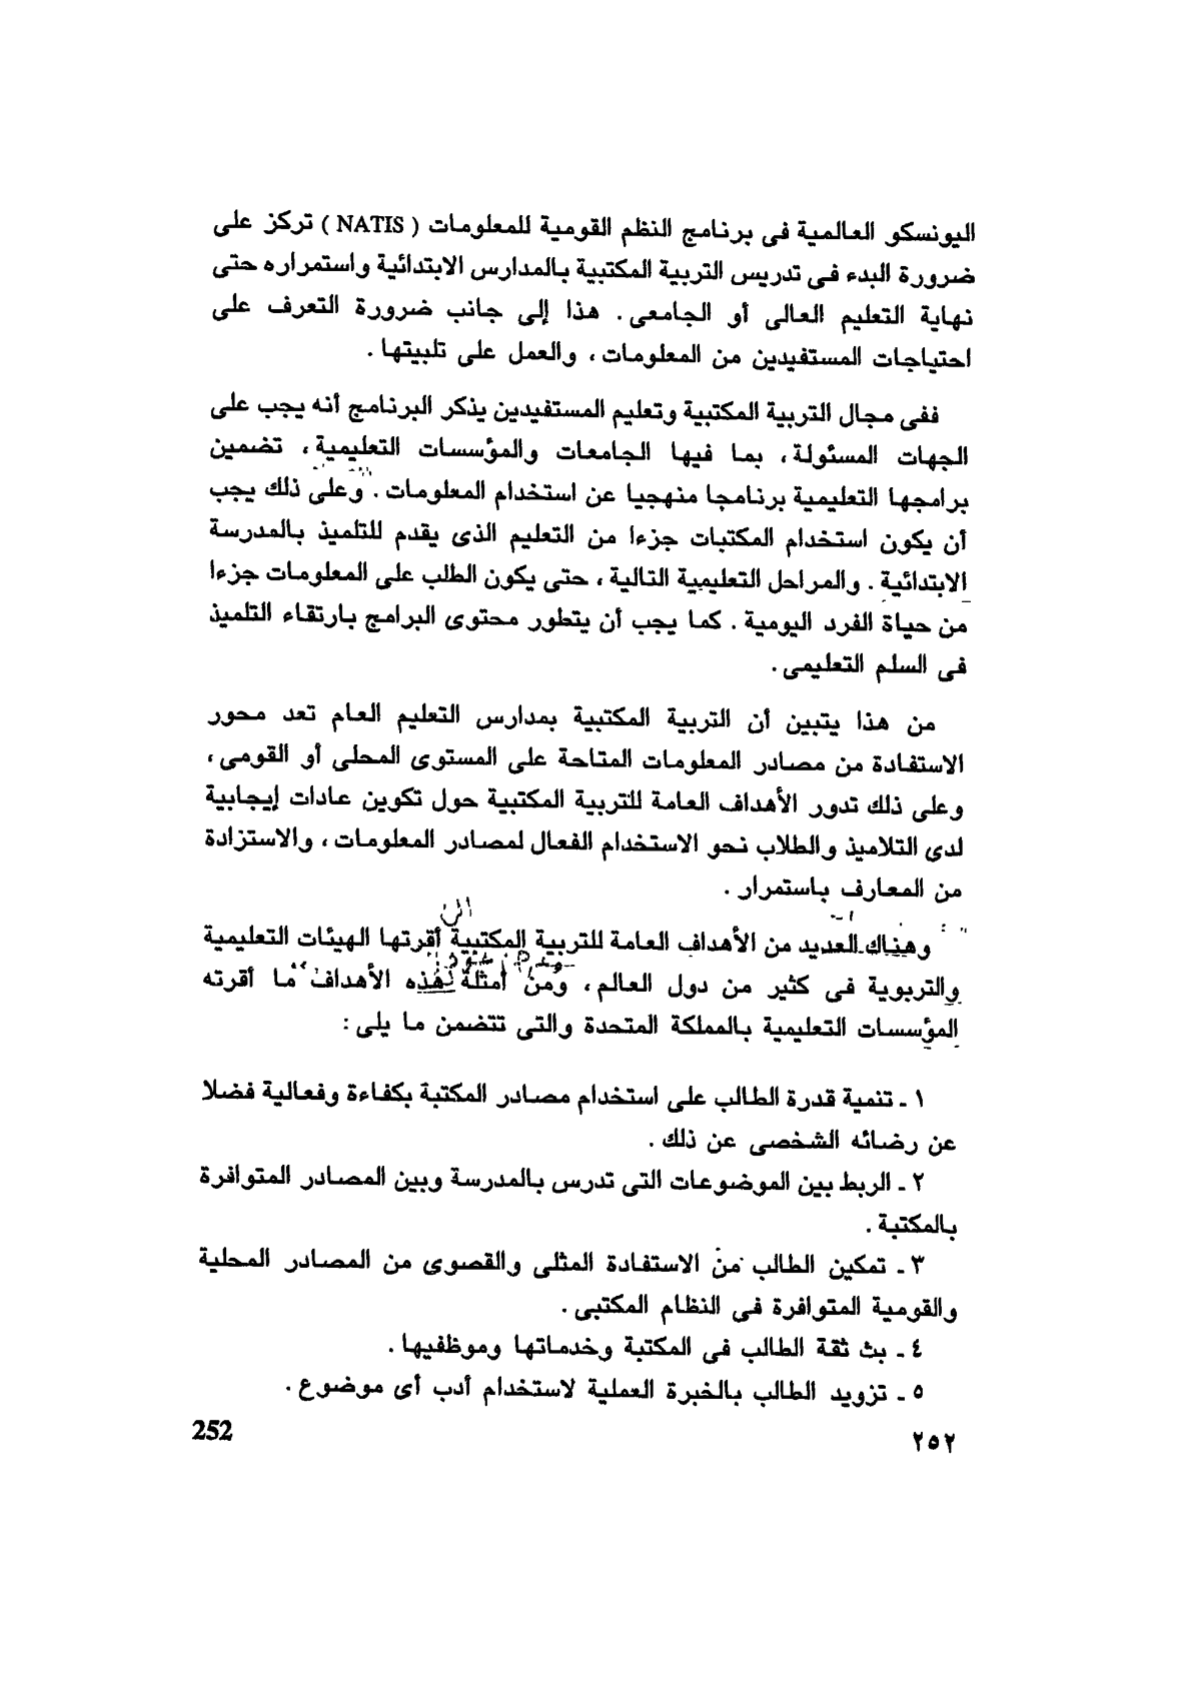 اليونسكو العالمية فى برنامج النظم القومية للمعلومات ( NATIS ) تركز على
ضرورة البدء فى تدريس التربية المكتبية بالمدارس الابتدائية واستمراره حتى
نهاية التعليم العالى أو الجامعى . هذا إلى جانب ضرورة التعرف على
احتياجات المستفيدين من المعلومات ، والعمل على تلبيتها .
ففى مجال التربية المكتبية وتعليم المستفيدين يذكر البرنامج أنه يجب على
الجهات المسئولة ، بما فيها الجامعات والمؤسسات التعليمية ، تضمين
برامجها التعليمية برنامجا منهجيا عن استخدام المعلومات . وعلى ذلك يجب
أن يكون استخدام المكتبات جزءا من التعليم الذى يقدم للتلميذ بالمدرسة
الابتدائية . والمراحل التعليمية التالية ، حتى يكون الطلب على المعلومات جزءا
من حياة الفرد اليومية . كما يجب أن يتطور محتوى البرامج بارتقاء التلميذ
فى السلم التعليمى .
من هذا يتبين أن التربية المكتبية بمدارس التعليم العام تعد محور
الاستفادة من مصادر المعلومات المتاحة على المستوى المحلى أو القومى ،
وعلى ذلك تدور الأهداف العامة للتربية المكتبية حول تكوين عادات إيجابية
لدى التلاميذ والطلاب نحو الاستخدام الفعال لمصادر المعلومات ، والاستزادة
من المعارف باستمرار .
وهناك العديد من الأهداف العامة للتربية المكتبية أقرتها الهيئات التعليمية
والتربوية فى كثير من دول العالم ، ومن أمثلة هذه الأهداف ما أقرته
المؤسسات التعليمية بالمملكة المتحدة والتى تتضمن ما يلى :
١ ـ تنمية قدرة الطالب على استخدام مصادر المكتبة بكفاءة وفعالية فضلا
عن رضائه الشخصى عن ذلك .
٢ ـ الربط بين الموضوعات التى تدرس بالمدرسة وبين المصادر المتوافرة
بالمكتبة .
٣ ـ تمكين الطالب من الاستفادة المثلى والقصوى من المصادر المحلية
والقومية المتوافرة فى النظام المكتبى .
٤ ـ بث ثقة الطالب فى المكتبة وخدماتها وموظفيها .
٥ ـ تزويد الطالب بالخبرة العملية لاستخدام أدب أى موضوع .
252
٢٥٢